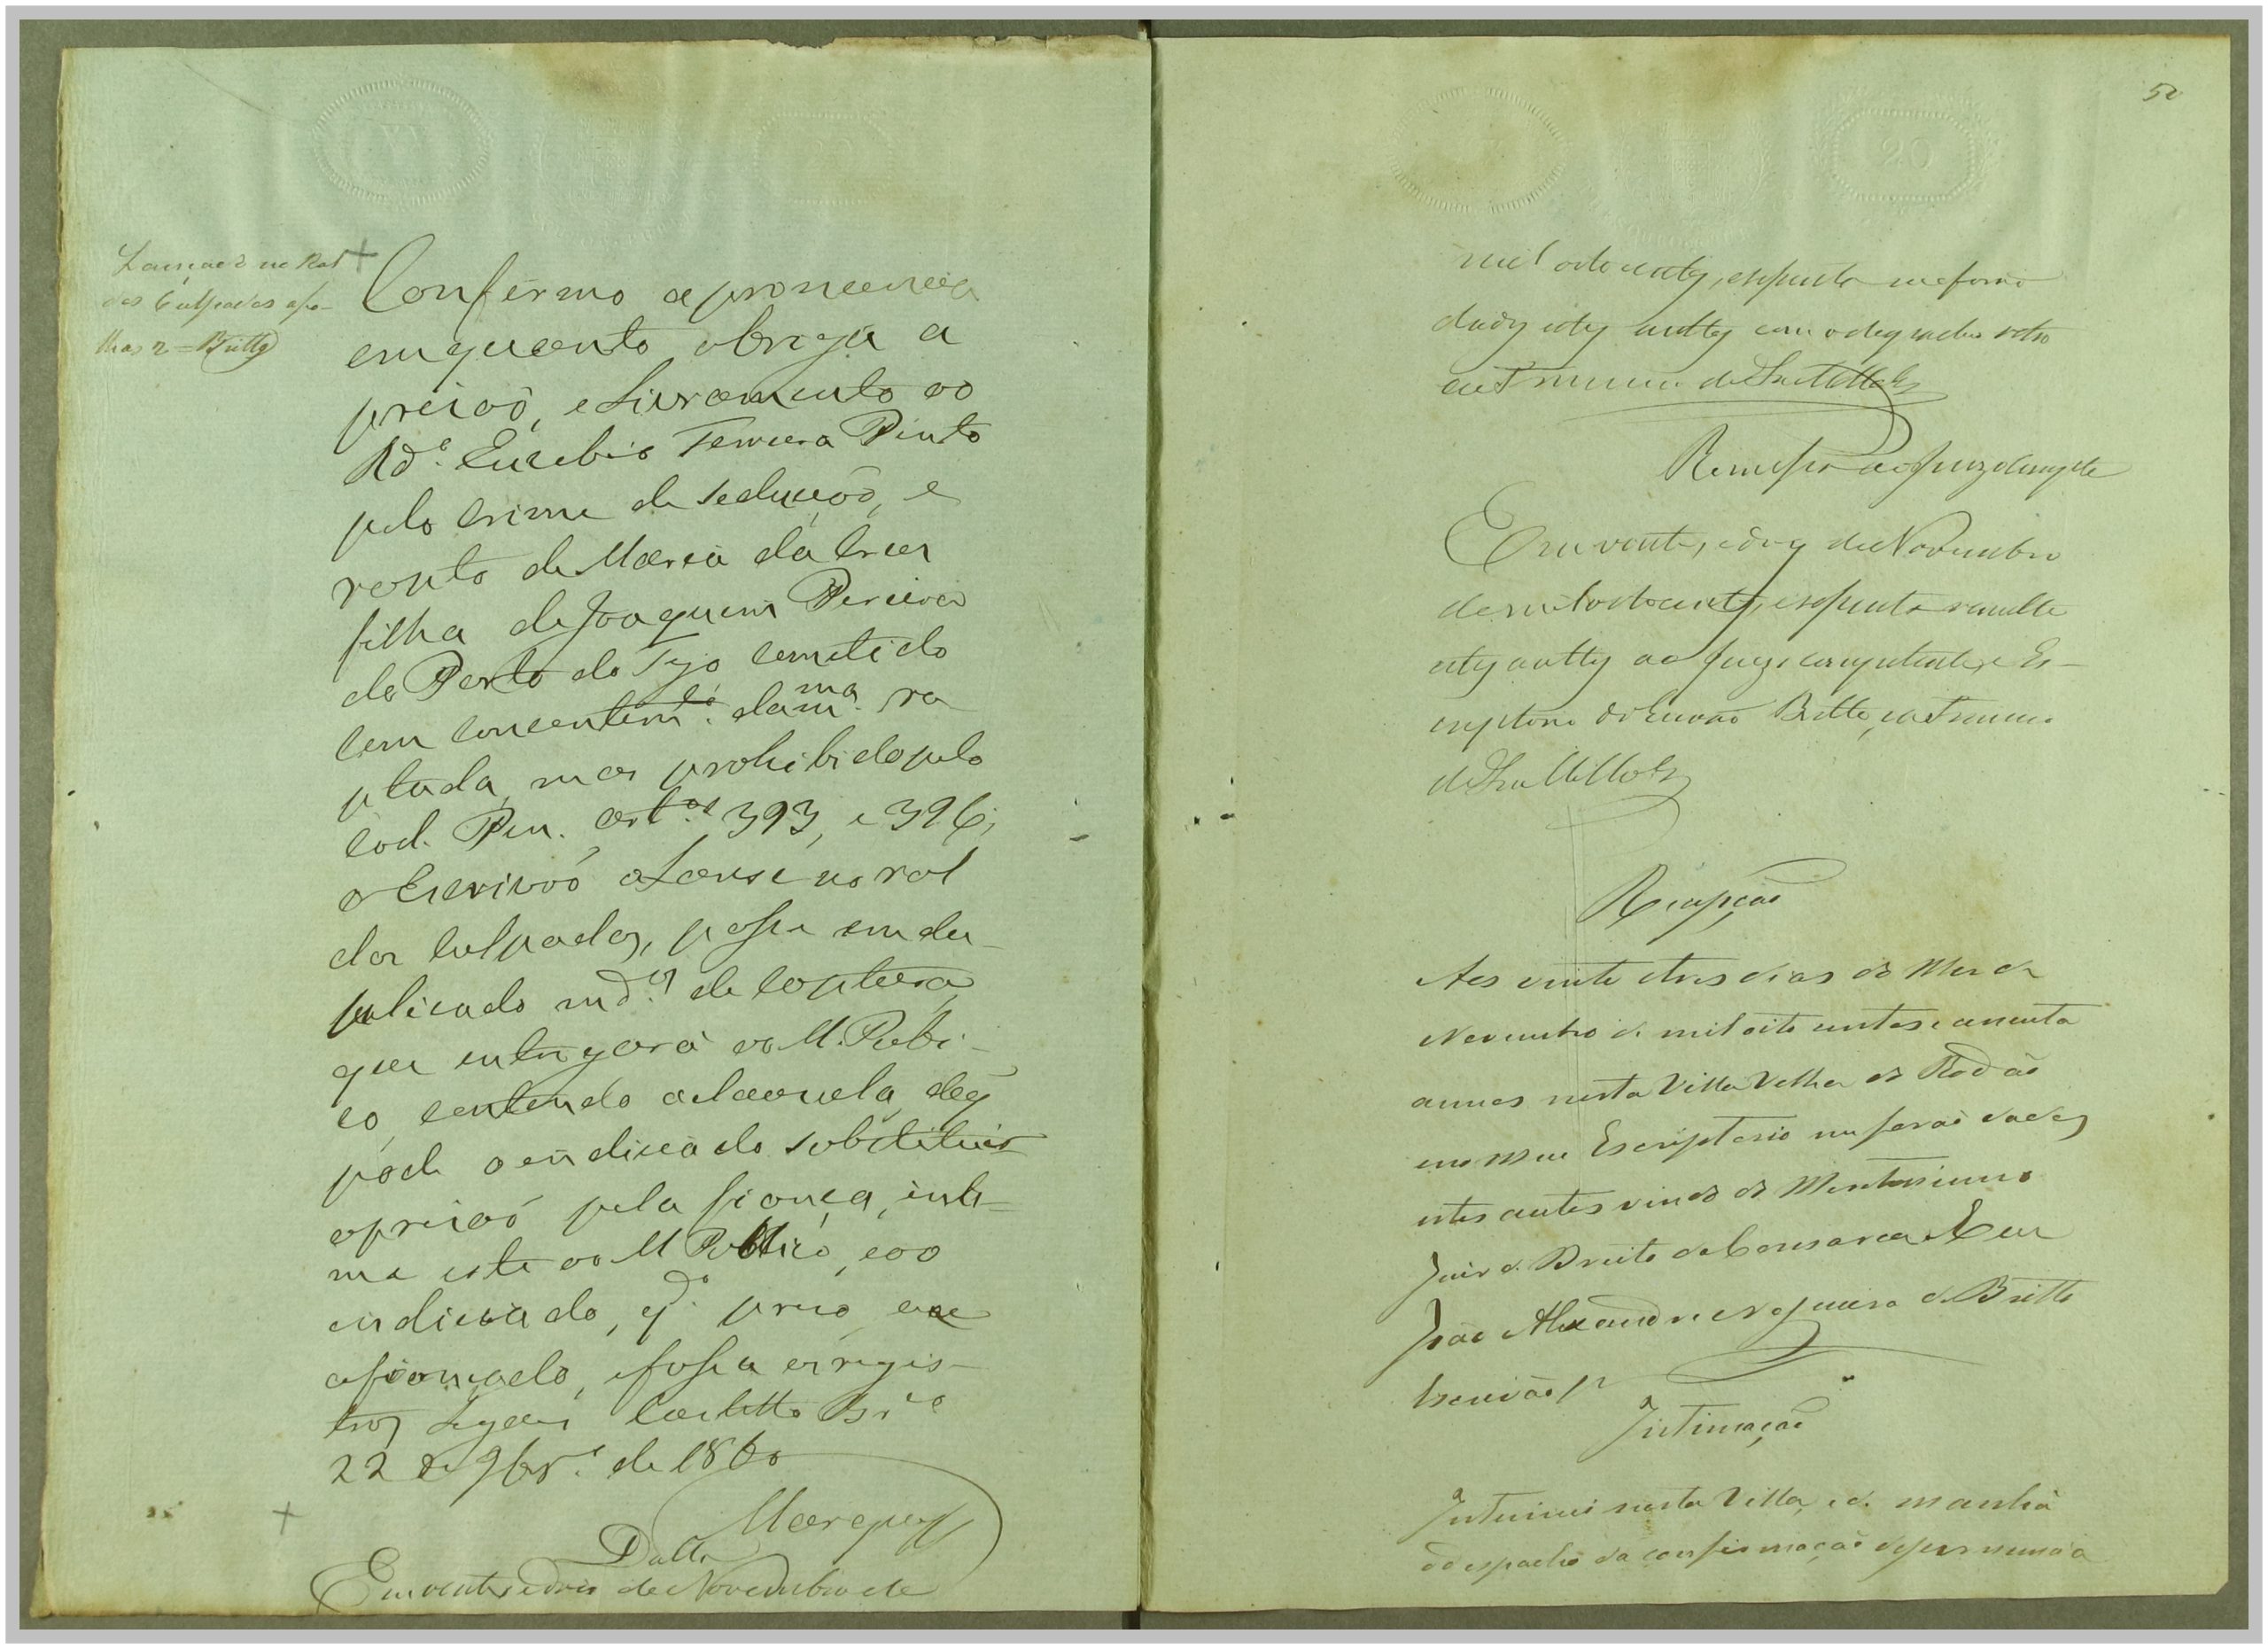 Lançado no Rol
dos Culpados afo-
lhas 2 = Britto
Confirmo a pronuncia
emquanto obriga a
prizaõ, e Livramento ao
Rd.º Euzebio Pinto
pelo crime de seducçaõ, e
rapto de Maria da Cruz
filha de Joaquim Pereira
do Porto do Tejo cometido
com concentim.to da m.ma ra
ptada, mas prohibido pelo
Cod. Pen. art.os 393, e 396;
o Escrivaõ o Lance no rol
dos culpados, passe em du-
plicado md.os de captura,
que entregará ao M. Publi-
co, contendo a clausula, de q
pode o endiciado substituir
a prizaõ pela fiança, inti-
me este ao M Publico, e ao
indiciado, q.do prezo, ou
afiançado, e faça os regis-
tros Legaes Castello Br.co
22 de 9br.º de 1860
Marques
Datta
Em vente e dois de Novembro de
50
mil oito centos, e sessenta me foraõ
dados estes auttos com o despacho retro
eu
Remessa ao Juizo competente
Em vente, e dois de Novembro
de mil oito centos, e sessenta remette
estes auttos ao Juizo competente, e Es-
criptorio do Escrivaõ Britto, eu
Recepçaõ
Aos vinte e tres dias do Mes de
Novembro de mil oito centos e secenta
annos nesta Villa Velha do Rodaõ
e no meu Escriptorio me foraõ dados
estes autos vindos do Meritissimo
Juiz de Direito da Comarca E eu
Joaõ Alexandre Nogueira de Britto
Escrivaõ
Intimaçaõ
Intimei nesta Villa, e de manhã
o despacho da confirmaçaõ de pernuncia